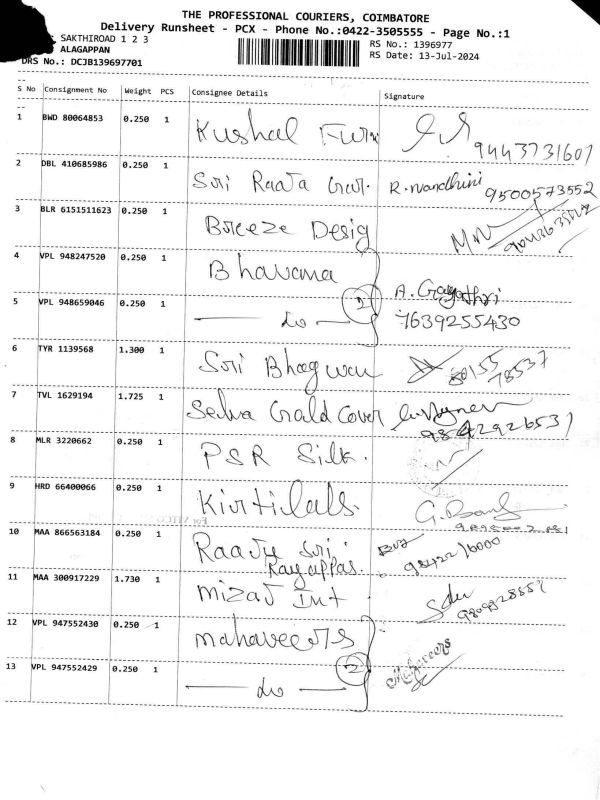 THE PROFESSIONAL COURIERS, COIMBATORE
Delivery Runsheet - PCX - Phone No.:0422-3505555 - Page No.:1
SAKTHIROAD 1 2 3
RS No.: 1396977
ALAGAPPAN
RS Date: 13-Jul-2024
DRS No.: DCJB139697701
S No Consignment No Weight PCS Consignee Details Signature
1 BWD 80064853 0.250 1 Kushal Furn 9443731607
2 DBL 410685986 0.250 1 Sri Raaja Gar. R. Nandhini 9500573552
3 BLR 6151511623 0.250 1 Breeze Desig
4 VPL 948247520 0.250 1 Bhavana
5 VPL 948659046 0.250 1 do 2 A. Gayathri 7639255430
6 TYR 1139568 1.300 1 Sri Bhagwan 78537
7 TVL 1629194 1.725 1 Selva Gald Cover 9842926531
8 MLR 3220662 0.250 1 PSR Silk.
9 HRD 66400066 0.250 1 Kirtilals.
10 MAA 866563184 0.250 1 Raaju Sri Rayappas. 9842216000
11 MAA 300917229 1.730 1 Mizaj Int
12 VPL 947552430 0.250 1 mahaveers
13 VPL 947552429 0.250 1 do 2 Mahaveers